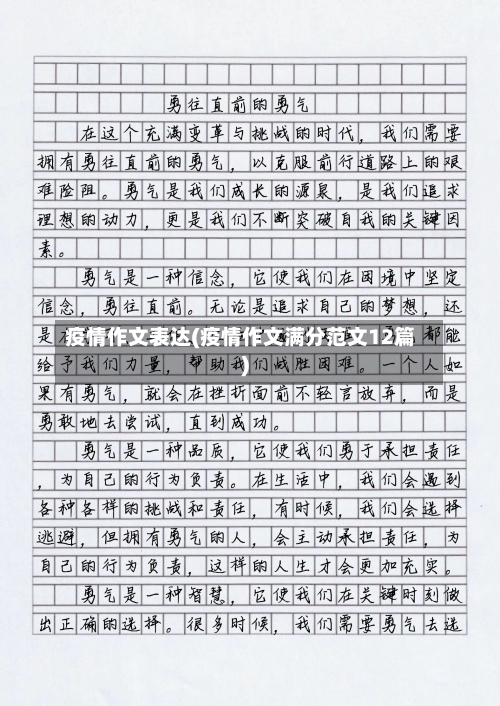 勇往直前的勇气
在这个充满变革与挑战的时代，我们需要
拥有勇往直前的勇气，以克服前行道路上的艰
难险阻。勇气是我们成长的源泉，是我们追求
理想的动力，更是我们不断突破自我的关键因
素。
勇气是一种信念，它使我们在困境中坚定
信念，勇往直前。无论是追求自己的梦想，还
是
都能
疫情作文表达(疫情作文满分范文12篇
)
给予我们力量，帮助我们战胜困难。一个人如
果有勇气，就会在挫折面前不轻言放弃，而是
勇敢地去尝试，直到成功。
勇气是一种品质，它使我们勇于承担责任
，为自己的行为负责。在生活中，我们会遇到
各种各样的挑战和责任，有时候，我们会选择
逃避，但拥有勇气的人，会主动承担责任，为
自己的行为负责，这样的人生才会更加充实。
勇气是一种智慧，它使我们在关键时刻做
出正确的选择。很多时候，我们需要勇气去选